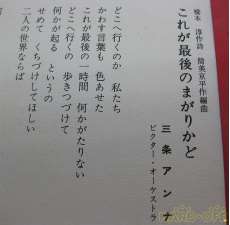 橋本 淳作詩 筒美京平作編曲
これが最後のまがりかど
三条アンナ
ビクター・オーケストラ
どこへ行くのか 私たち
かわす言葉も 色あせた
これが最後の一時間 何かがたりない
どこへ行くの 歩きつづけて
何かが起る というの
せめて くちづけしてほしい
二人の世界ならば